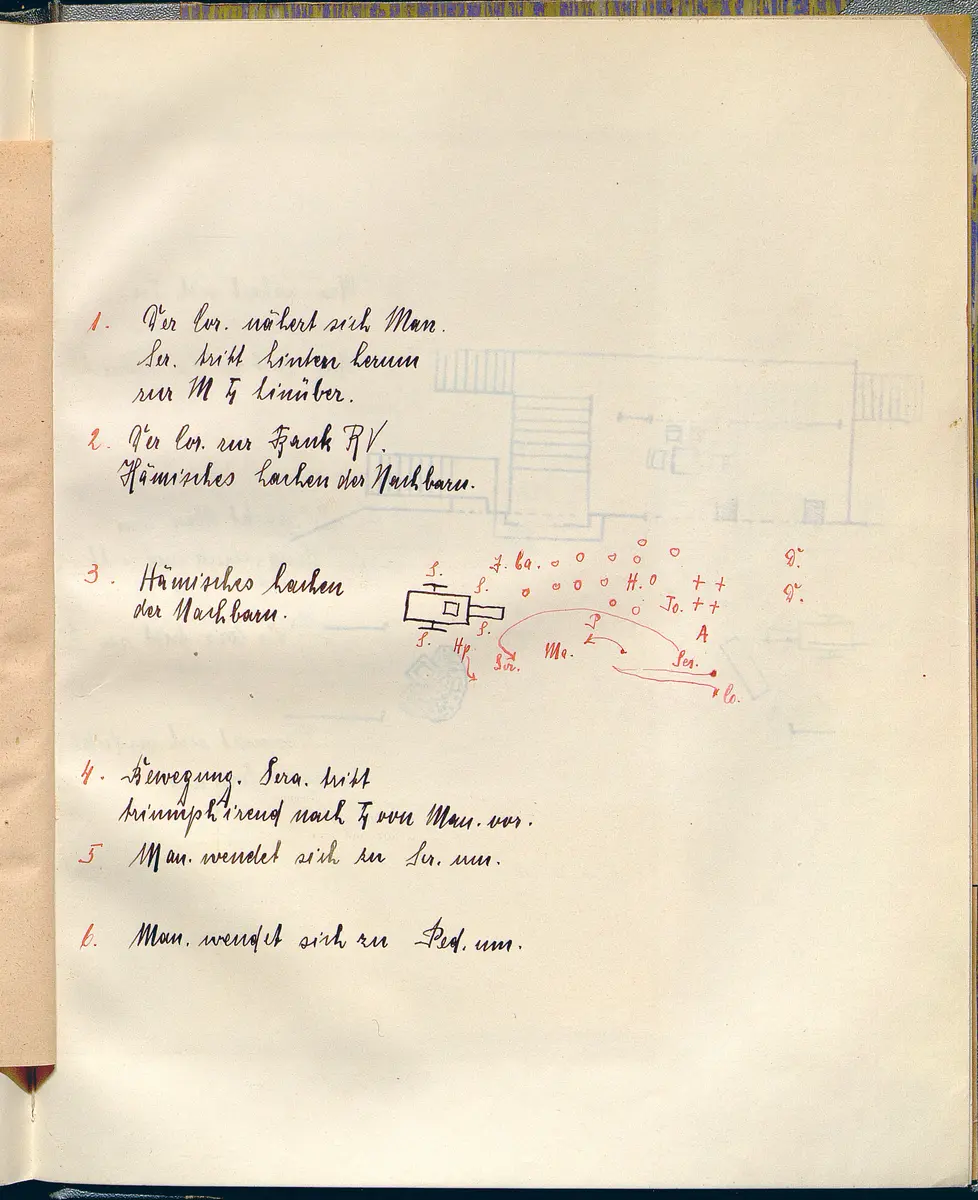 1. Der Cor. nähert sich Man.
Ser. tritt hinten herum
zur M L hinüber.
2. Der Cor. zur Bank RV.
Hämisches Lachen der Nachbarn.
3. Hämisches Lachen
der Nachbarn.
S. J. Ca. D.
S. H. To. D.
S. S. P A
Hp. Sor. Ma. Ser.
Co.
4. Bewegung. Sera. tritt
triumphirend nach L von Man. vor.
5 Man. wendet sich zu Ser. um.
6. Man. wendet sich zu Ped. um.